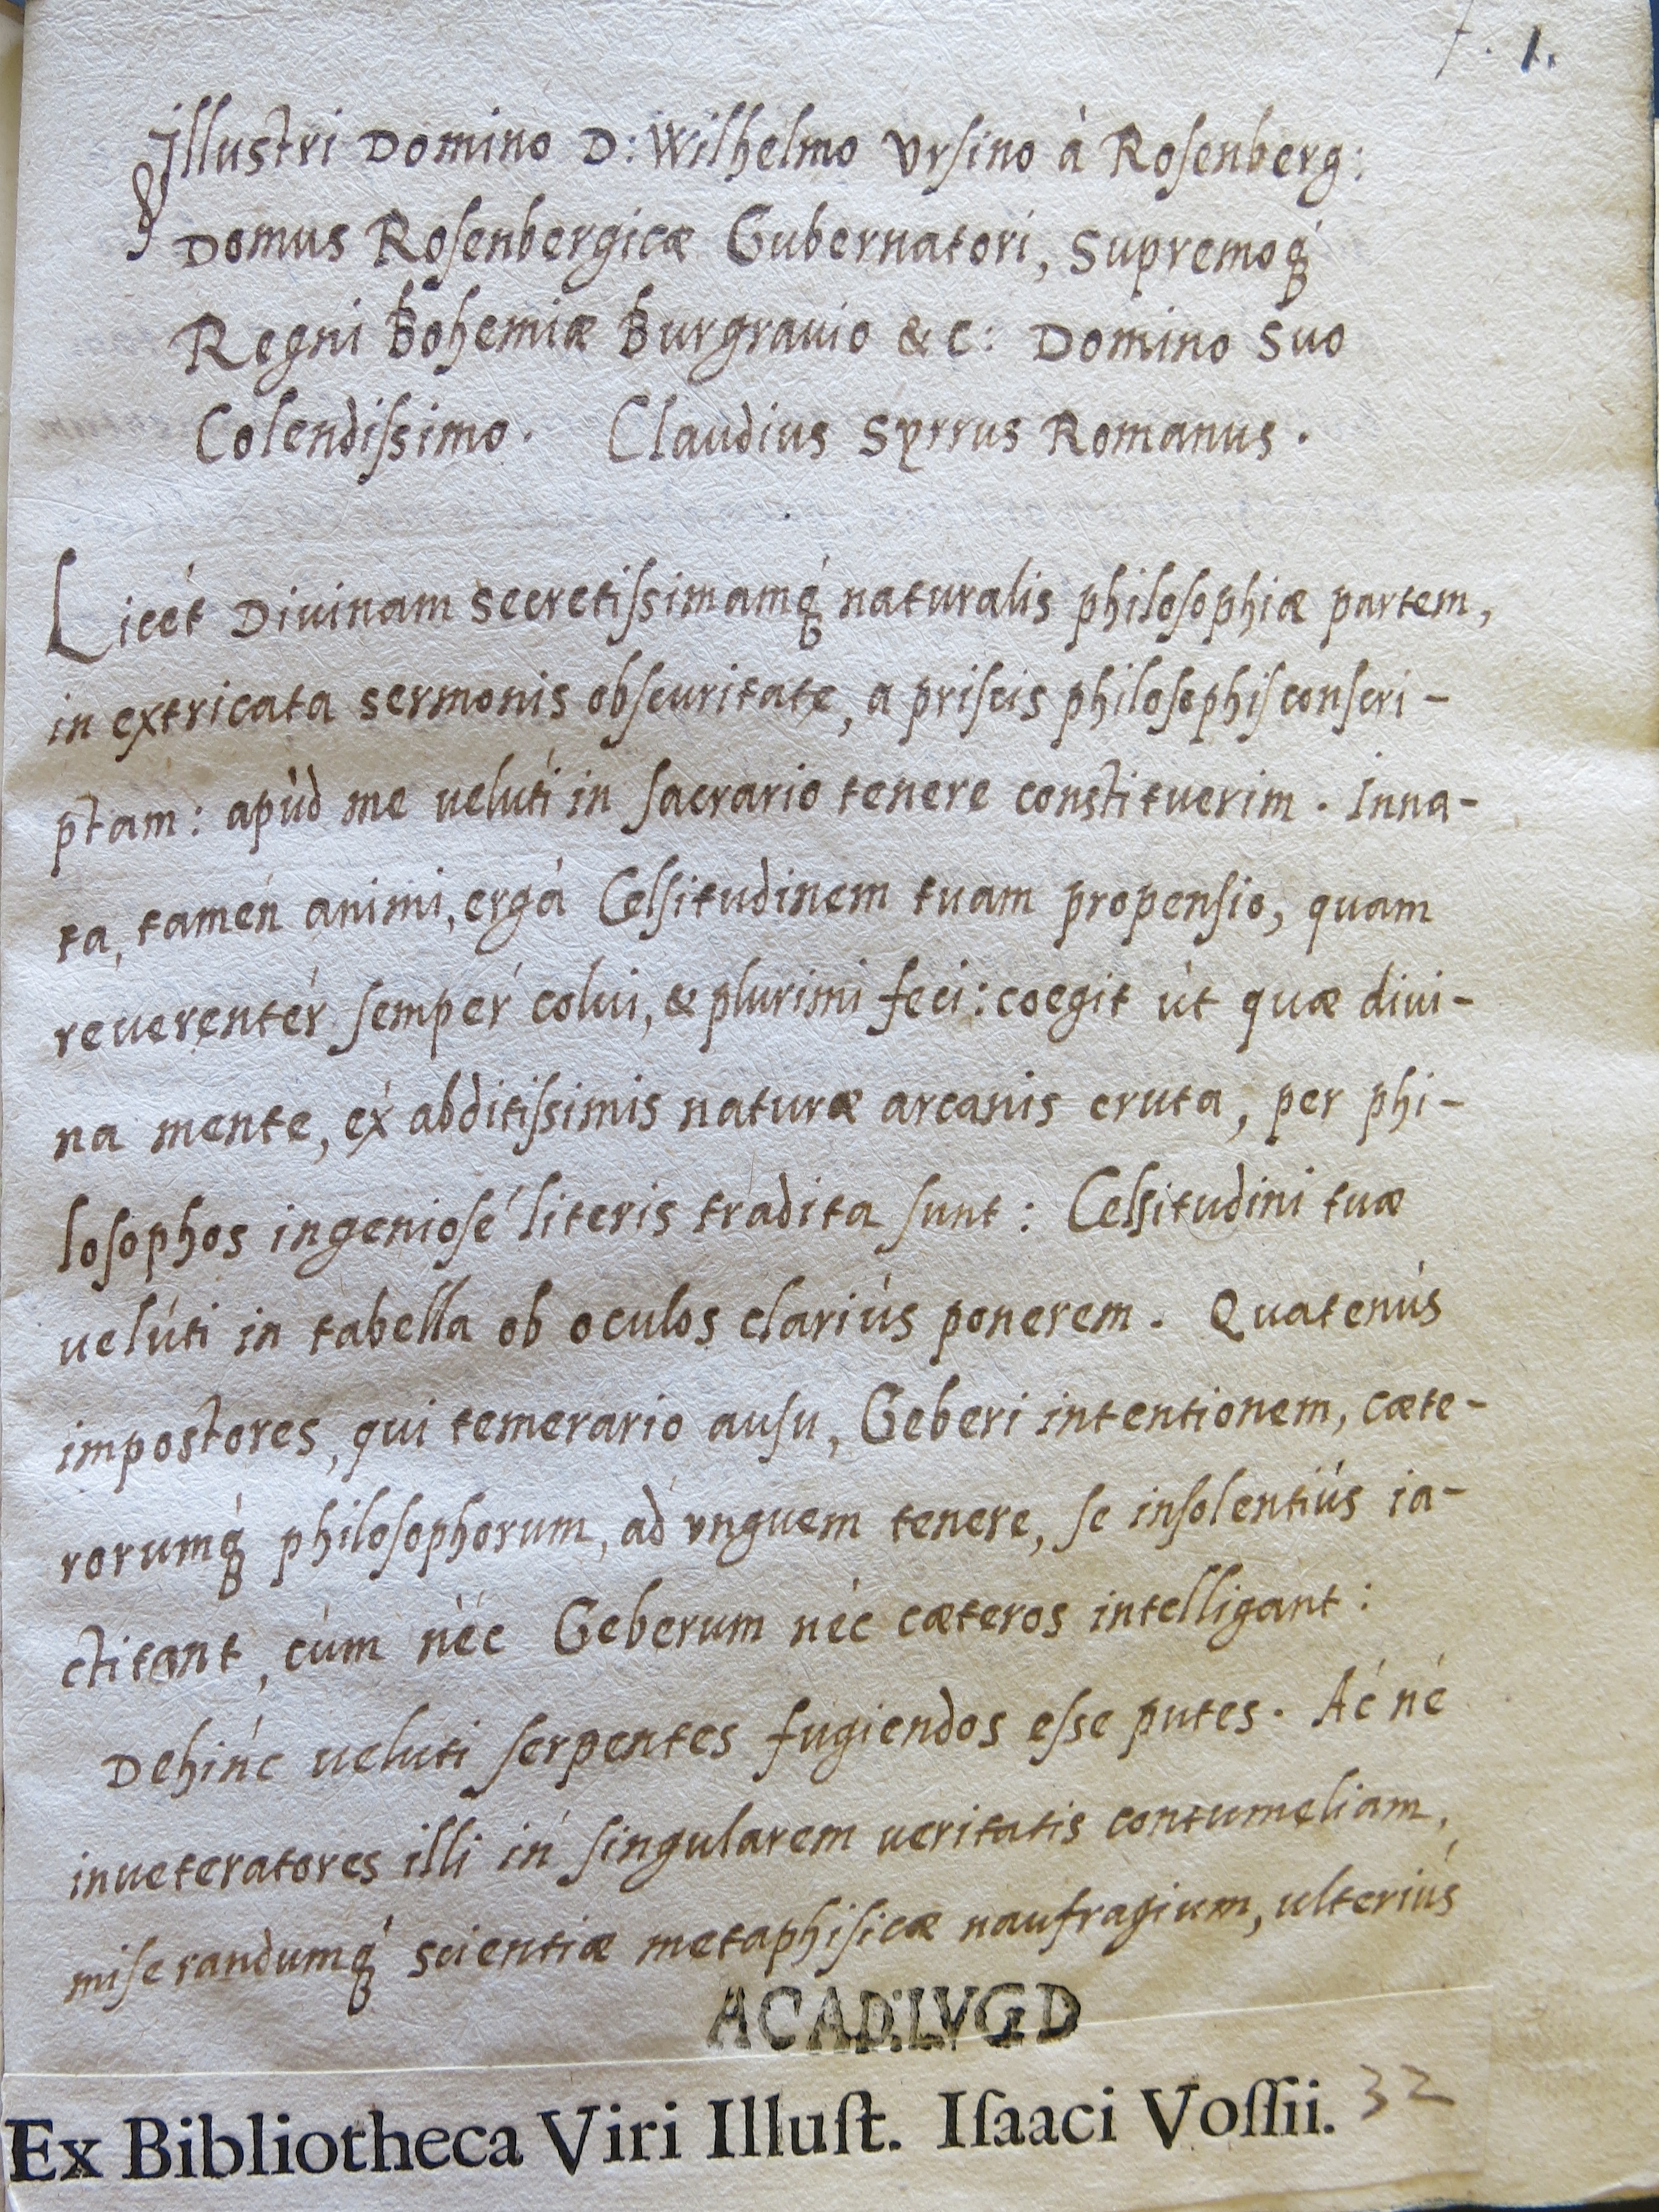 f. 1.
Illustri Domino D: Wilhelmo Vrsino à Rosenberg:
Domus Rosenbergicæ Gubernatori, Supremoq́ꝫ
Regni Bohemiæ Burgrauio &c: Domino suo
Colendissimo. Claudius Syrrus Romanus.
Licét Diuinam secretissimamq́ꝫ naturalis philosophiæ partem,
in extricata sermonis obscuritate, a priscis philosophis conscri-
ptam: apùd me uelúti in sacrario tenere constituerim. Inna-
ta, tamén animi, ergá Celsitudinem tuam propensio, quam
reuerentér sempér colui, & plurimi feci: coegit út quæ diui-
na mente, éx abditissimis naturæ arcanis eruta, per phi-
losophos ingeniosé literis tradita sunt: Celsitudini tuæ
uelúti in tabella ob oculos clariús ponerem. Quatenús
impostores, qui temerario ausu, Geberi intentionem, cæte-
rorumq́ꝫ philosophorum, ad vnguem tenere, se insolentiús ia-
ctitant, cúm néc Geberum néc cæteros intelligant:
Dehinć ueluti serpentes fugiendos esse putes. Ać né
inueteratores illi iń singularem ueritatis contumeliam,
miserandumq́ꝫ scientiæ metaphisicæ naufragium, ulteriús
ACAD:LVGD
Ex Bibliotheca Viri Illuſt. Iſaaci Voſſii. 32